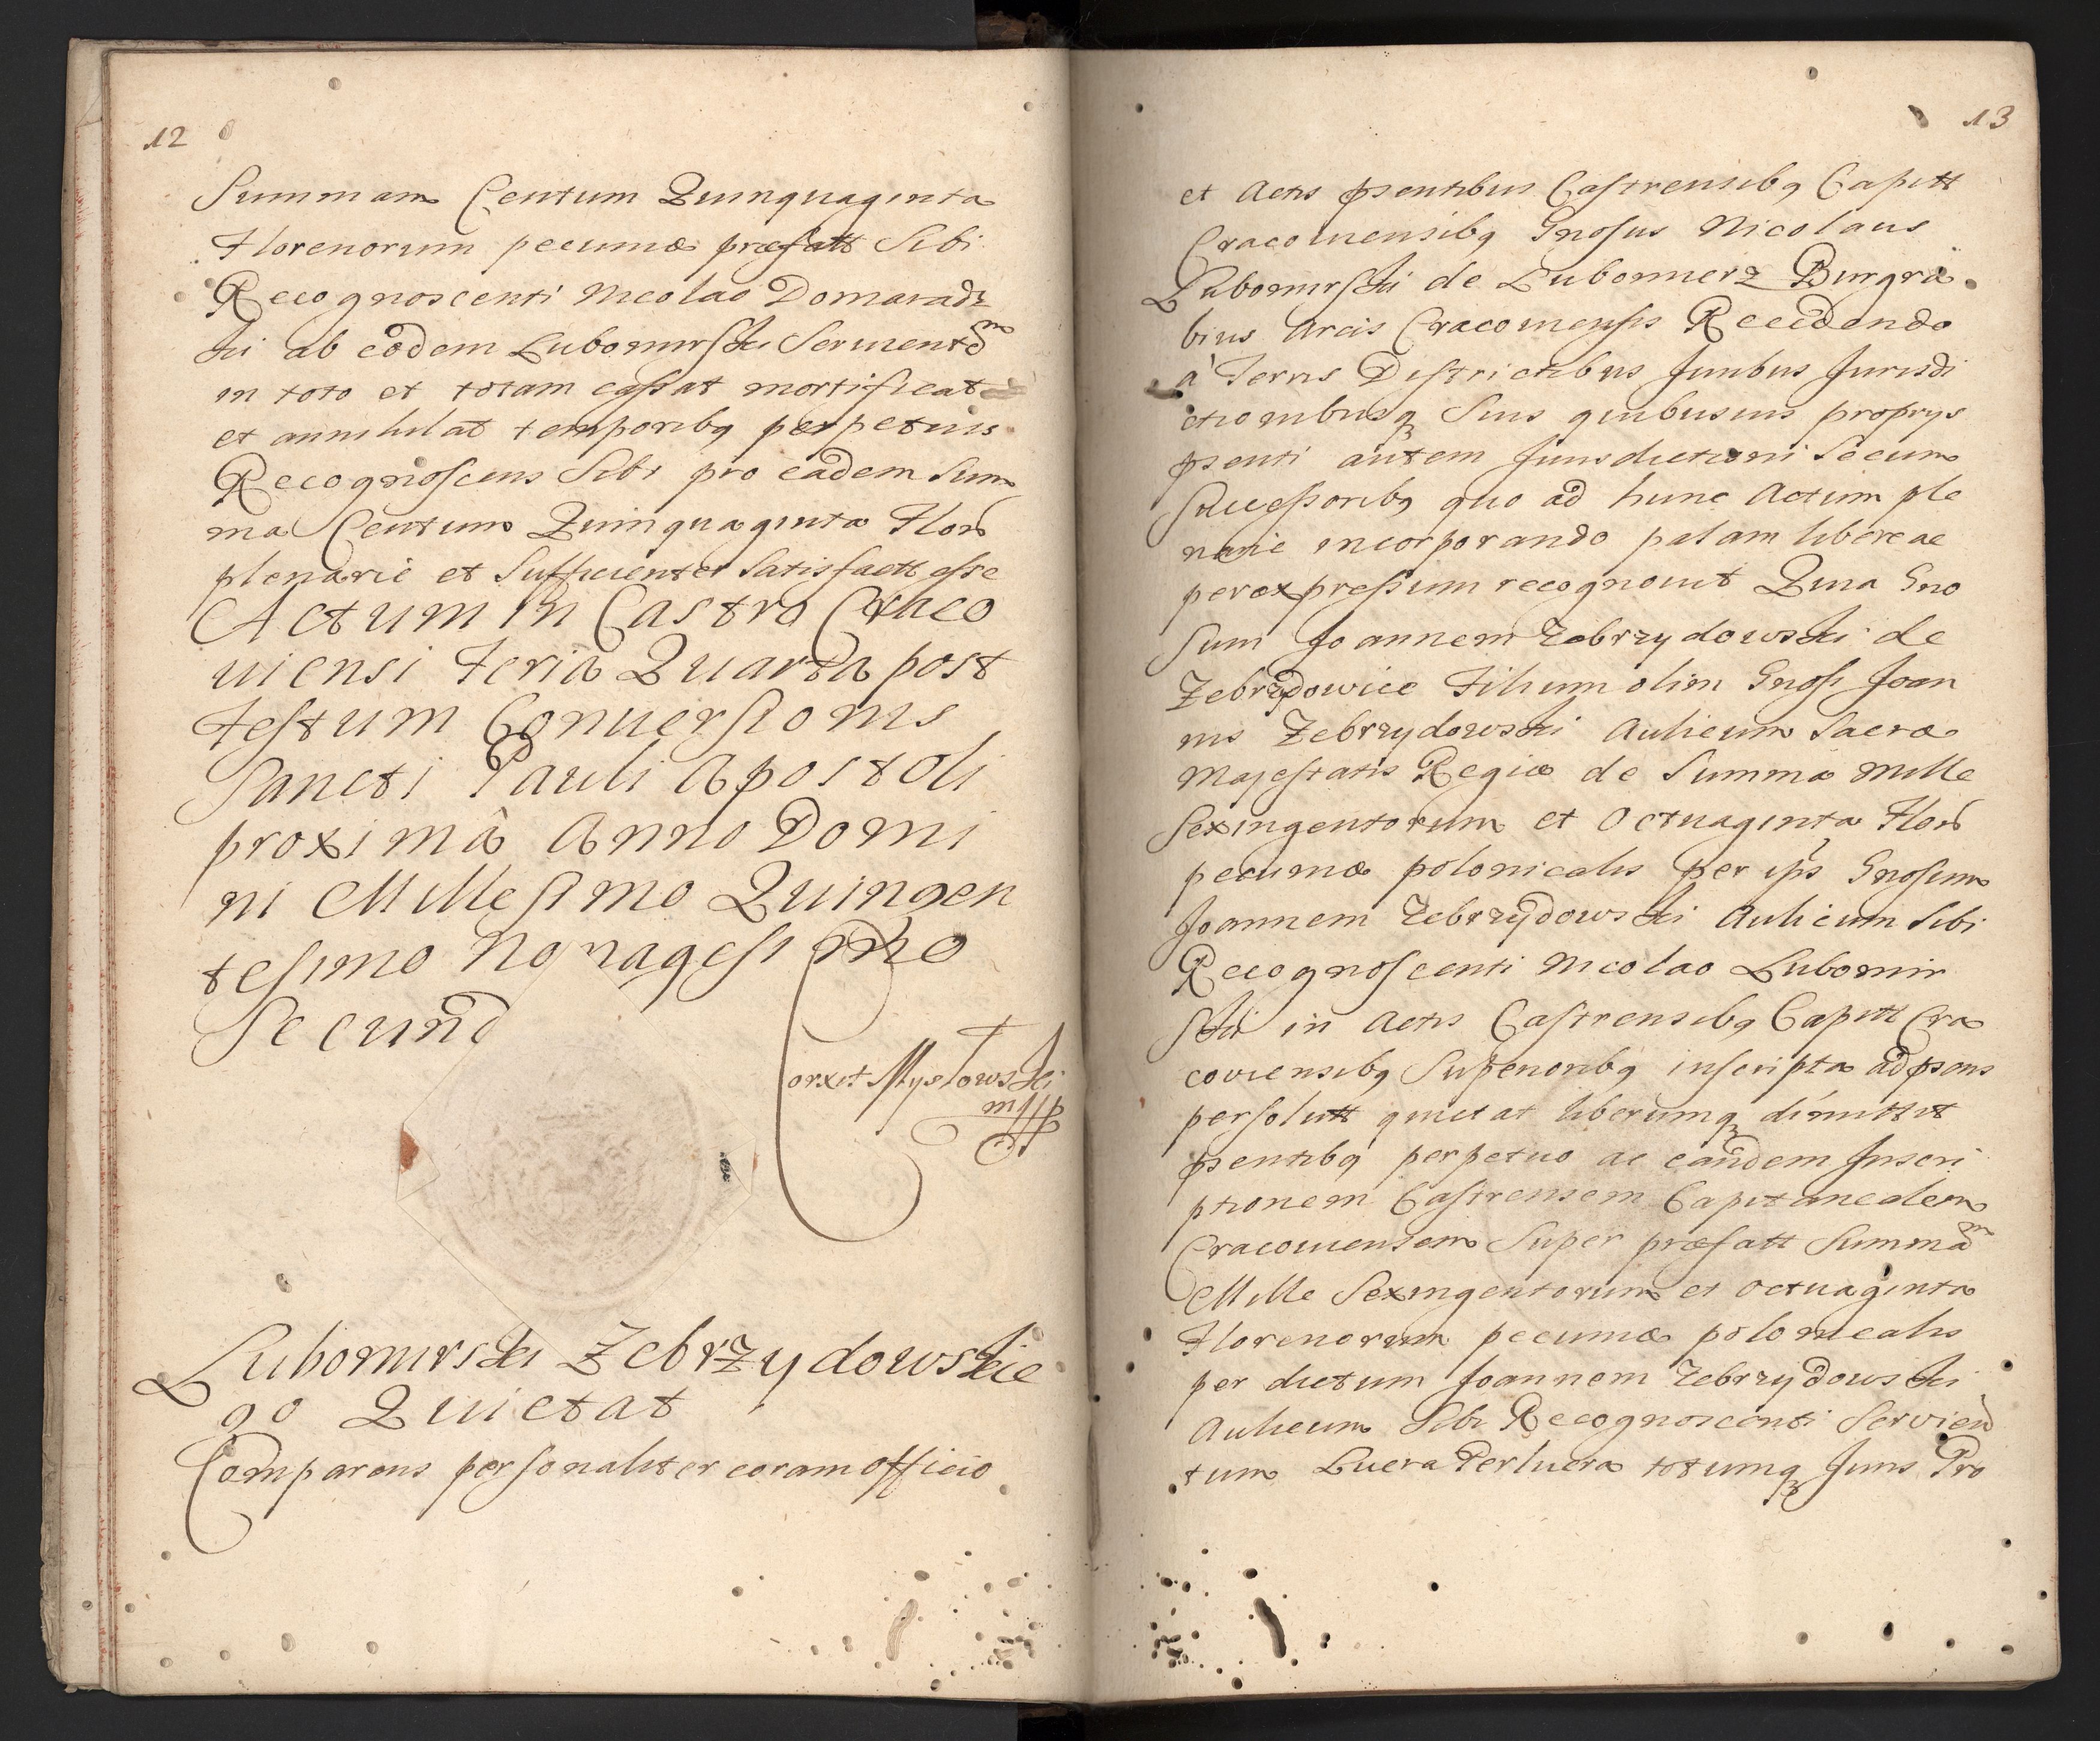 12
Summam Centum Quinquaginta
Florenorum pecuniæ præfatt Sibi
Recognoscenti Nicolao Domaradz
ki ab eodem Lubomirski Servientẽ
in toto et totam cassat mortificat
et annihilat temporibq perpetuis
Recognoscens Sibi pro eadem Sum
ma Centum Quinquaginta Flor
plenarie et Sufficienter Satisfactt esse
Actum in Castro Craco
viensi Feria Quarta post
Festum Conversionis
Sancti Pauli Apostoli
proximâ Anno Domi
ni Millesimo Quingen
tesimo Nonagesimo
Secund
Corxit Mysłowski
mpp
Lubomirski Zebrzydowskie
go Quietat
Comparens personaliter coram officio
13
et Actis pñsentibus Castrensibq Capitt
Cracoviensibq Gnosus Nicolaus
Lubomirski de Lubomierz Burgra
bius Arcis Cracoviensis Recedendo
à Terris Districtibus Juribus Jurisdi
ctionibusq Suis quibusvis proprys
pñsenti autem Jurisdictioni Secum
Successoribq quo ad hunc Actum ple
narie incorporando palam libere ac
per expressum recognovit Quia Gno
sum Joannem Zebrzydowski de
Zebrzydowice Filium olim Gnosi Joan
nis Zebrzydowski Aulicum Sacræ
Majestatis Regiæ de Summa Mille
Sexingentorum et Octuaginta Flor
pecuniæ polonicalis per ips Gnosum
Joannem Zebrzydowski Aulicum Sibi
Recognoscenti Nicolao Lubomir
ski in Actis Castrensibq Capitt Cra
coviensibq Superioribq inscripta ad pñsens
persolutt quietat liberumq dimittit
pñsentibq perpetuo ac eandem Inscri
ptionem Castrensem Capitanealem
Cracoviensem Super præfatt Summam
Mille Sexingentorum et Octuaginta
Florenorum pecuniæ polonicalis
per dictum Joannem Zebrzydowski
Aulicum Sibi Recognoscenti Servien
tum Lucra Perlucra totumq Juris Pro